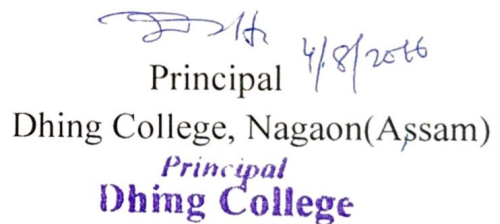 4/8/2016
Principal
Dhing College, Nagaon(Assam)
Principal
Dhing College